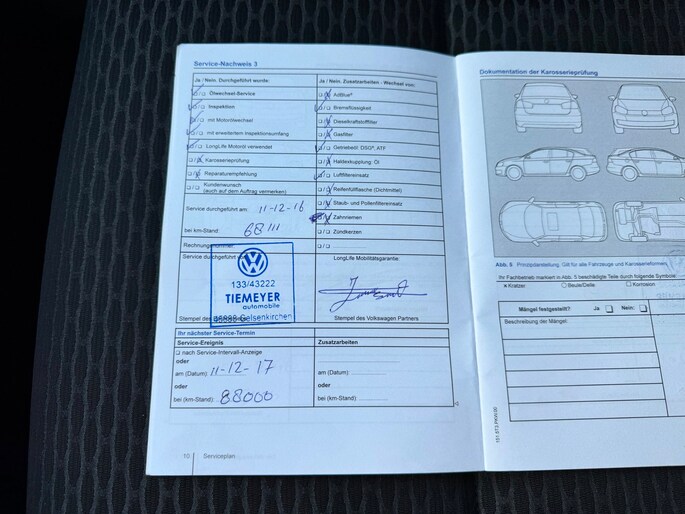 Service-Nachweis 3
Ja / Nein. Durchgeführt wurde:
Ölwechsel-Service
Inspektion
mit Motorölwechsel
mit erweitertem Inspektionsumfang
LongLife Motoröl verwendet
Karosserieprüfung
Reparaturempfehlung
Kundenwunsch
(auch auf dem Auftrag vermerken)
Service durchgeführt am: 11-12-16
bei km-Stand: 68111
Rechnungsnummer:
Service durchgeführt
133/43222
TIEMEYER
automobile
Gelsenkirchen
Stempel des
Ja / Nein. Zusatzarbeiten - Wechsel von:
AdBlue®
Bremsflüssigkeit
Dieselkraftstofffilter
Gasfilter
Getriebeöl: DSG®, ATF
Haldexkupplung: Öl
Luftfiltereinsatz
Reifenfüllflasche (Dichtmittel)
Staub- und Pollenfiltereinsatz
Zahnriemen
Zündkerzen
LongLife Mobilitätsgarantie:
Stempel des Volkswagen Partners
Ihr nächster Service-Termin
Service-Ereignis
nach Service-Intervall-Anzeige
oder
am (Datum): 11-12-17
oder
bei (km-Stand): 88000
Zusatzarbeiten
am (Datum):
oder
bei (km-Stand):
10 Serviceplan
Dokumentation der Karosserieprüfung
Abb. 5 Prinzipdarstellung: Gilt für alle Fahrzeuge und Karosserieformen
Ihr Fachbetrieb markiert in Abb. 5 beschädigte Teile durch folgende Symbole:
× Kratzer Beule/Delle Korrosion
Mängel festgestellt? Ja Nein:
Beschreibung der Mängel: